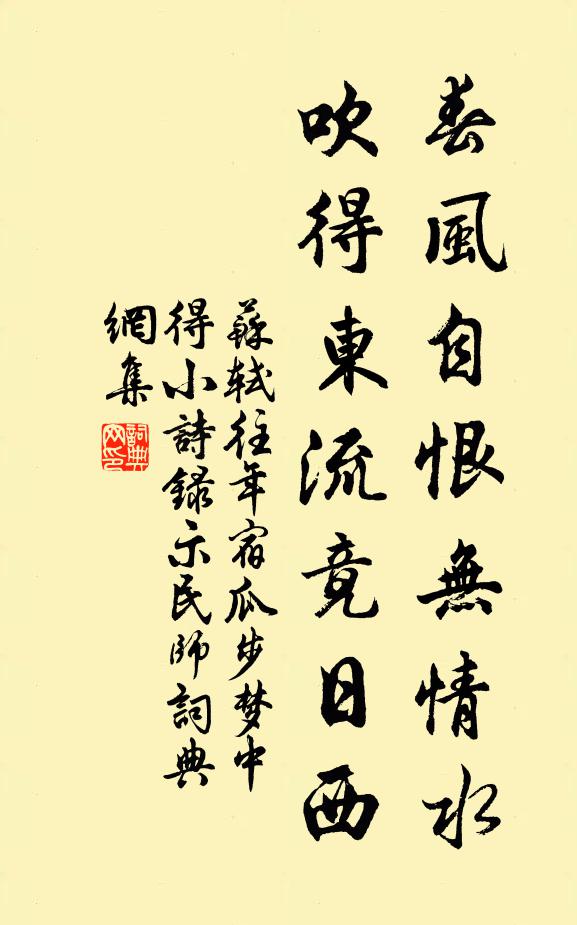 春風自恨無情水
吹得東流竟日西
蘇軾往年宿瓜步梦中
得小詩録示民師詞典
網集
詞典
网印